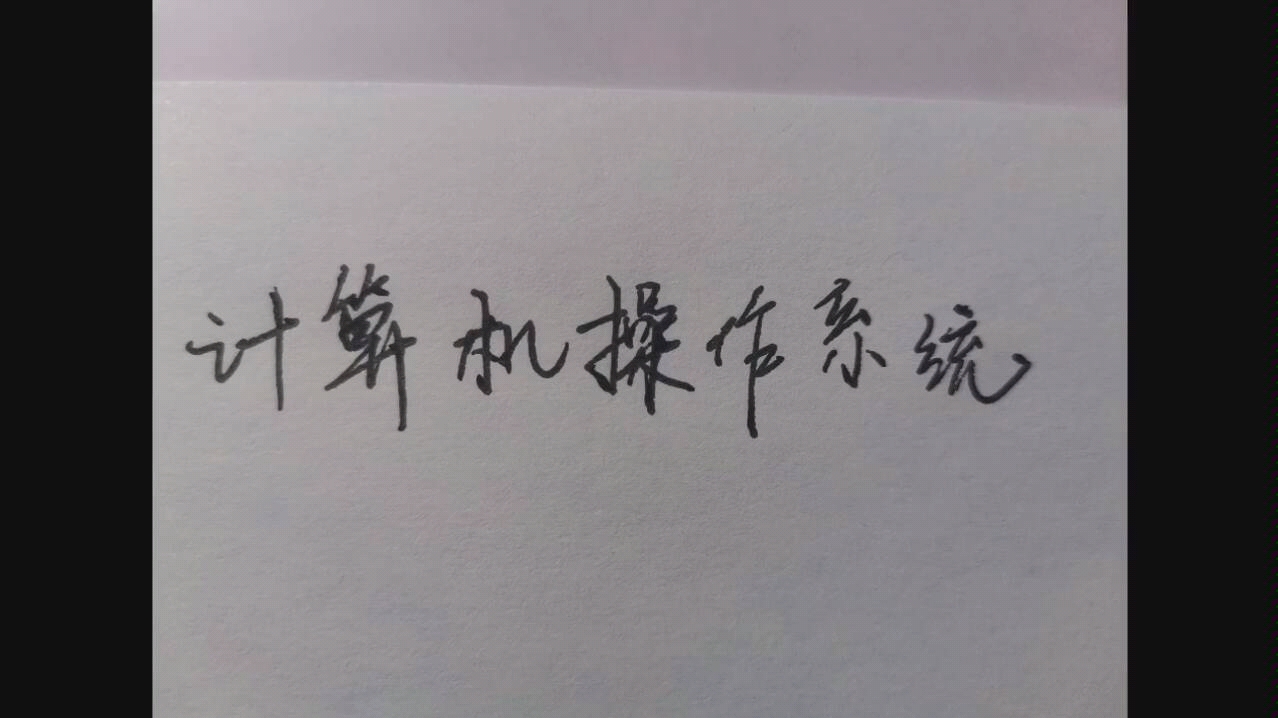 计算机操作系统